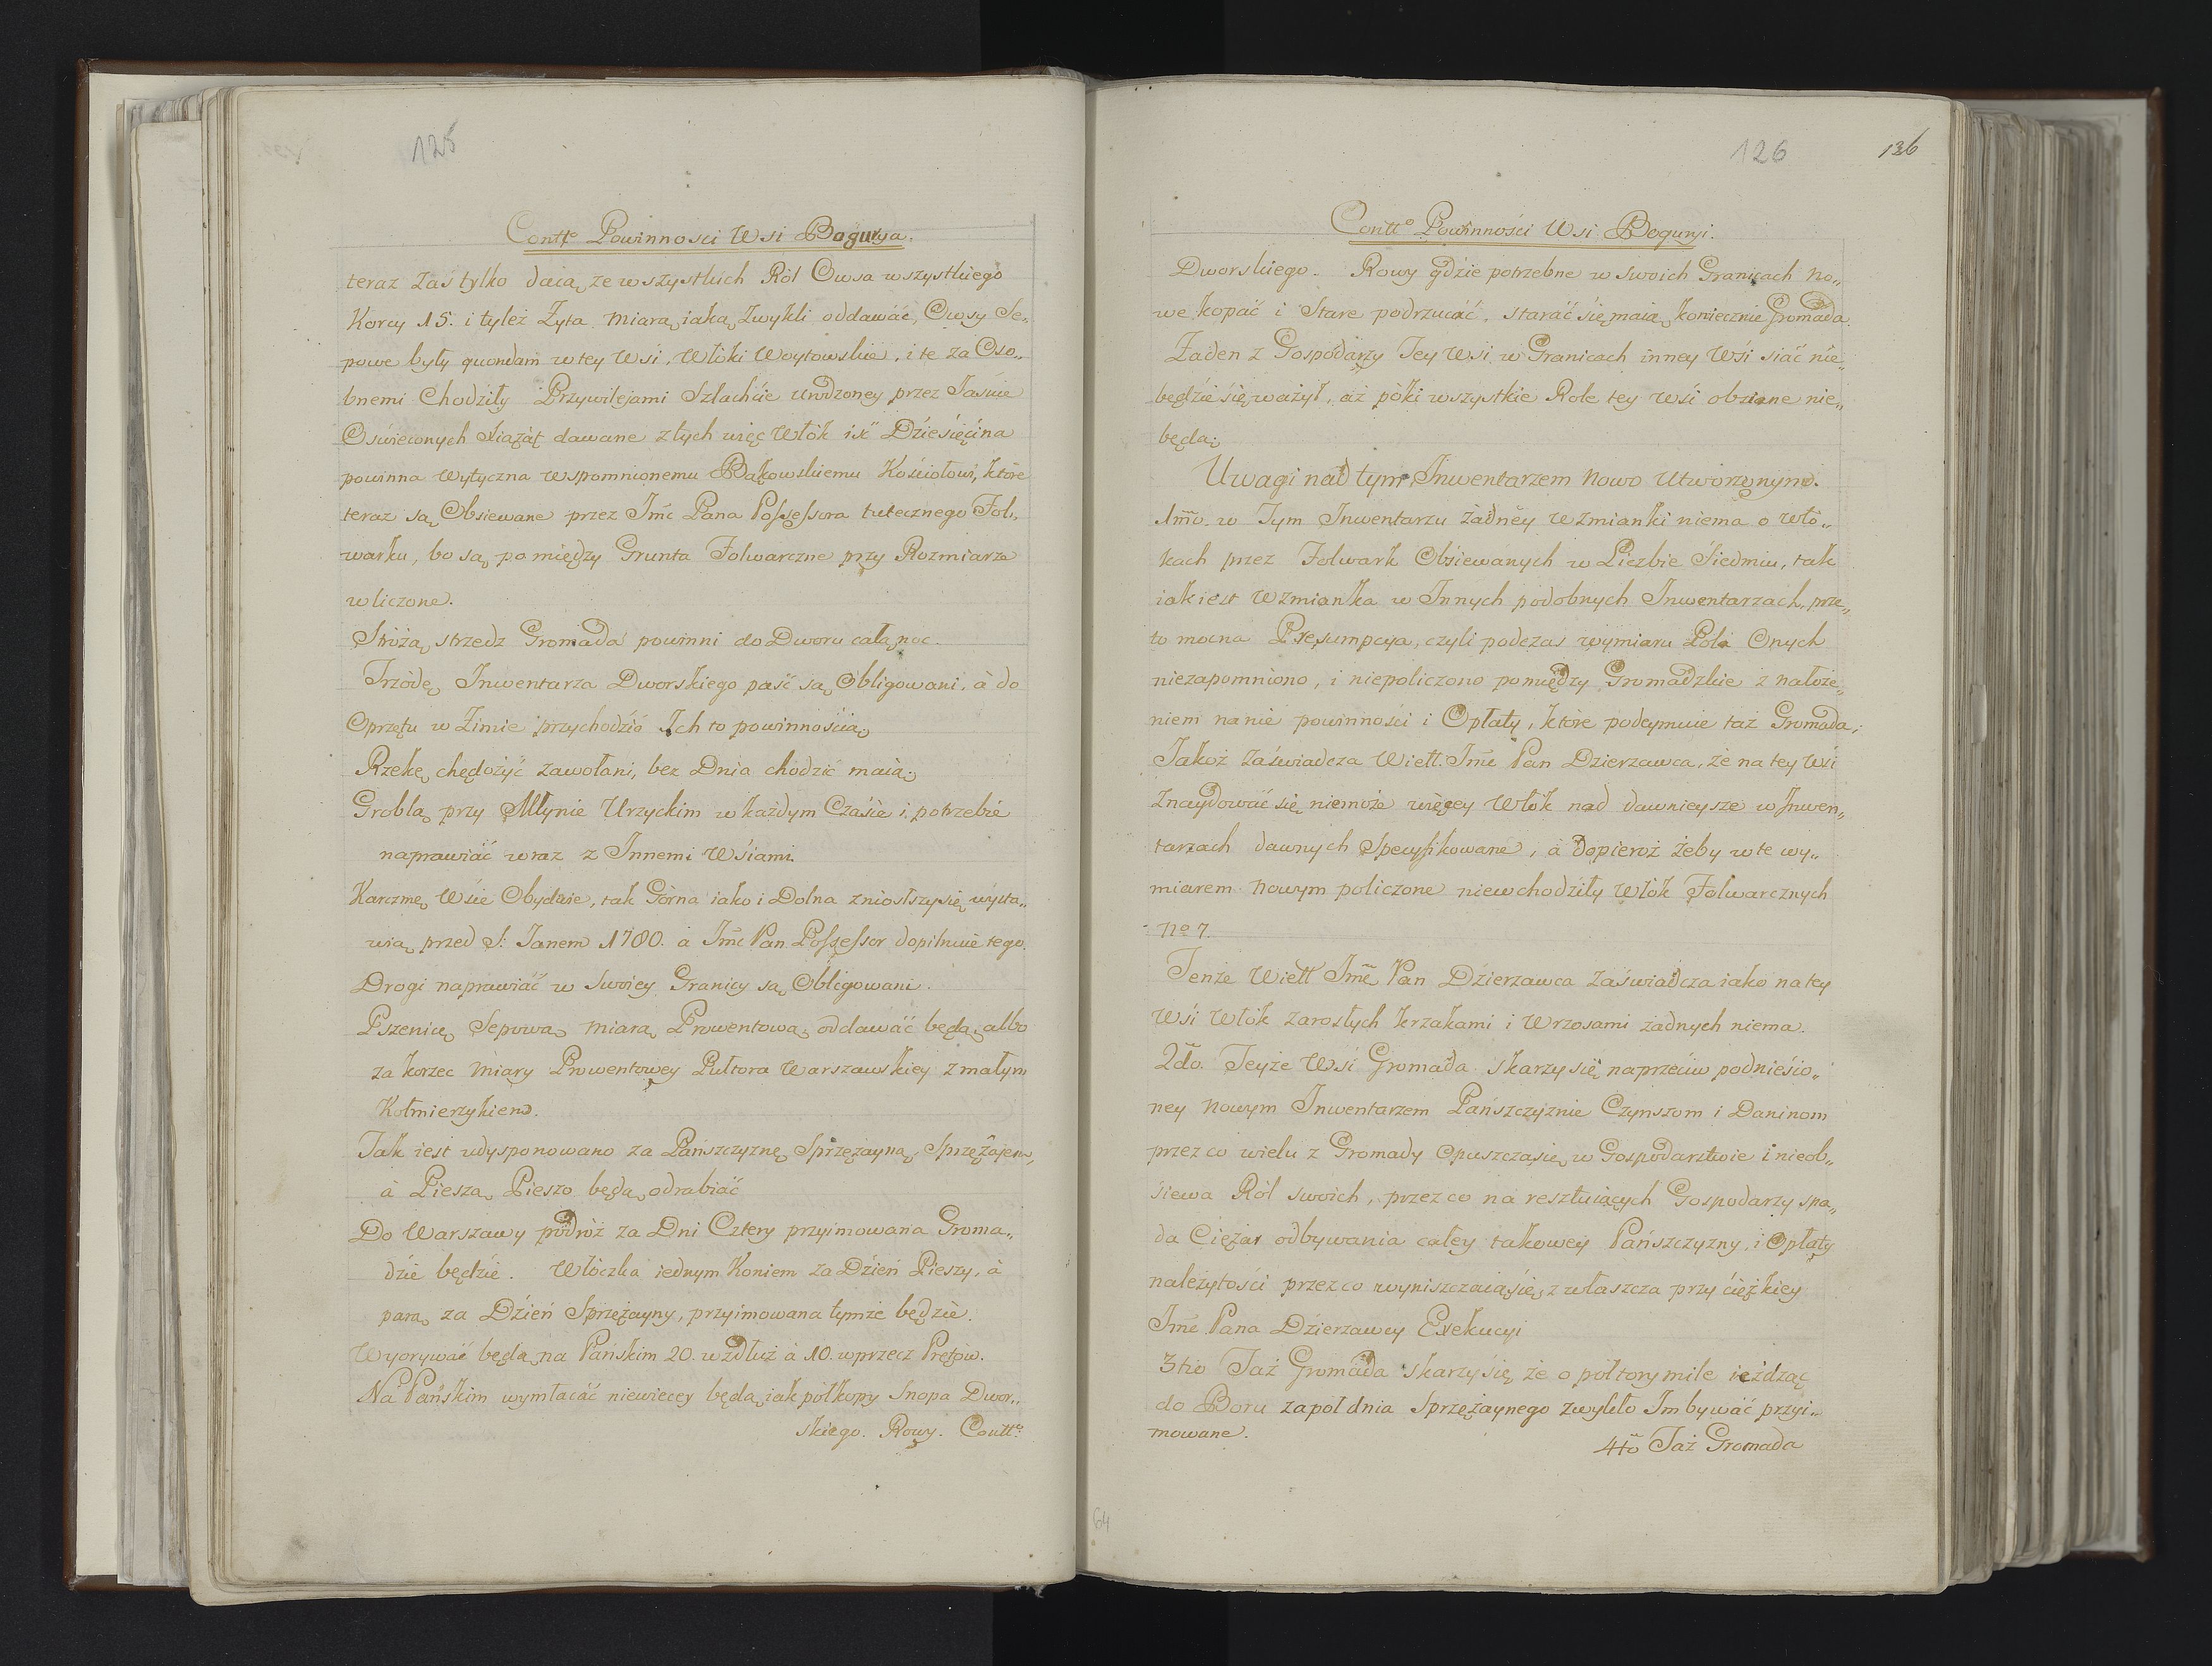 125
Contto Powinnosci Wsi Bogurya.
teraz zas tylko daią ze wszystkich Ról Owsa wszystkiego
Korcy 15. i tyleż Żyta miarą iaką zwykli oddawać, Owsy Se„
powe były quondam w tey Wsi, Włoki Woytowskie, i te za Oso„
bnemi Chodziły Przywilejami Szlachcie urodzoney przez Jaśnie
Oświeconych Xiążąt dawane z tych więc Włók ix Dziesięćina
powinna wytyczna wspomnionemu Bąkowskiemu Kościołowi, które
teraz są Obsiewane przez Jmć Pana Possessora tutecznego Fol„
warku, bo są pomiędzy Grunta Folwarczne przy Rozmiarze
wliczone.
Stróżą strzedz Gromada powinni do Dworu całą noc.
Trzodę Inwentarza Dworskiego paść są Obligowani, à do
Oprzętu w Zimie przychodzić Ich to powinnością
Rzekę chędożyć zawołani, bez Dnia chodzić maią
Groblą przy Młynie Urzyckim w każdym Czasie i potrzebie
naprawiać wraz z Innemi Wsiami.
Karczmę Wsie Obydwie, tak Górna iako i Dolna zniosłszy się wysta„
wią przed S: Janem 1780. a Jmć Pan Possessor dopilnuie tego.
Drogi naprawiać w Swoiey Granicy są Obligowani.
Pszenicę Sepową miarą Prowentową oddawać będą albo
za korzec Miary Prowentowey Pułtora Warszawskiey z małym
Kołmierzykiem.
Jak iest udysponowano za Pańszczyznę Sprzężayną Sprzężajem,
à Pieszą Pieszo będą odrabiać
Do Warszawy podróż za Dni Cztery przyimowana Groma„
dzie będzie. Włóczka iednym Koniem za Dzień Pieszy, à
parą za Dzień Sprzężayny, przyimowana tymże będzie.
Wyorywać będą na Pańskim 20. wzdłuż à 10. wprzecz Prętów.
Na Pańskim wymłacać niewiecey będą iak półkopy Snopa Dwor„
skiego. Rowy. Contto
126
136
Contto Powinności Wsi Boguryi.
Dworskiego. Rowy gdzie potrzebne w Swoich Granicach no„
we kopać i Stare podrzucać, starać się maią koniecznie Gromada.
Żaden z Gospodarzy Tey Wsi w Granicach inney Wśi siać nie„
będzie się ważył, aż póki wszystkie Role tey wśi obsiane nie„
będą
Uwagi nad tym Inwentarzem nowo Utworzonym.
1mo. w Tym Inwentarzu żadney wzmianki niema o Wło„
kach przez Folwark Obsiewanych w Liczbie Siedmiu, tak
iak iest Wzmianka w Innych podobnych Inwentarzach, prze„
to mocna Presumpcya, czyli podczas wymiaru Pola Onych
niezapomniono, i niepoliczono pomiędzy Gromadzkie z nałoże„
niem nanie powinności i Opłaty, które podeymuie taż Gromada;
Jakoż Zaświadcza Wiell. Jmć Pan Dzierzawca, że na tey Wśi
Znaydować się niemoże więcey Włók nad dawnieysze w Inwen„
tarzach dawnych Specyfikowane, à dopieroż żeby w te wy„
miarem nowym policzone niewchodziły Włók Folwarcznych
No 7.
Tenże Wiell Jmć Pan Dzierzawca zaświadcza iako na tey
Wśi Włók zarosłych krzakami i Wrzosami żadnych niema.
2do. Teyże Wsi Gromada skarzy się naprzeciw podnieśio„
ney nowym Inwentarzem Pańszczyznie Czynszom i Daninom
przez co wielu z Gromady Opuszcza się w Gospodarstwie i nieob„
śiewa Ról swoich, przez co na resztuiących Gospodarzy spa„
da Ciężar odbywania całey takowey Pańszczyzny, i Opłaty
należytości przez co wyniszczaią się, z właszcza przy ciężkiey
Jmć Pana Dzierzawcy Exekucyi
3tio Taż Gromada skarzy się że o poltory mile ieżdżąc
do Boru za pol dnia Sprzężaynego zwykło Im bywać przyi„
mowane.
4to Taż Gromada
64